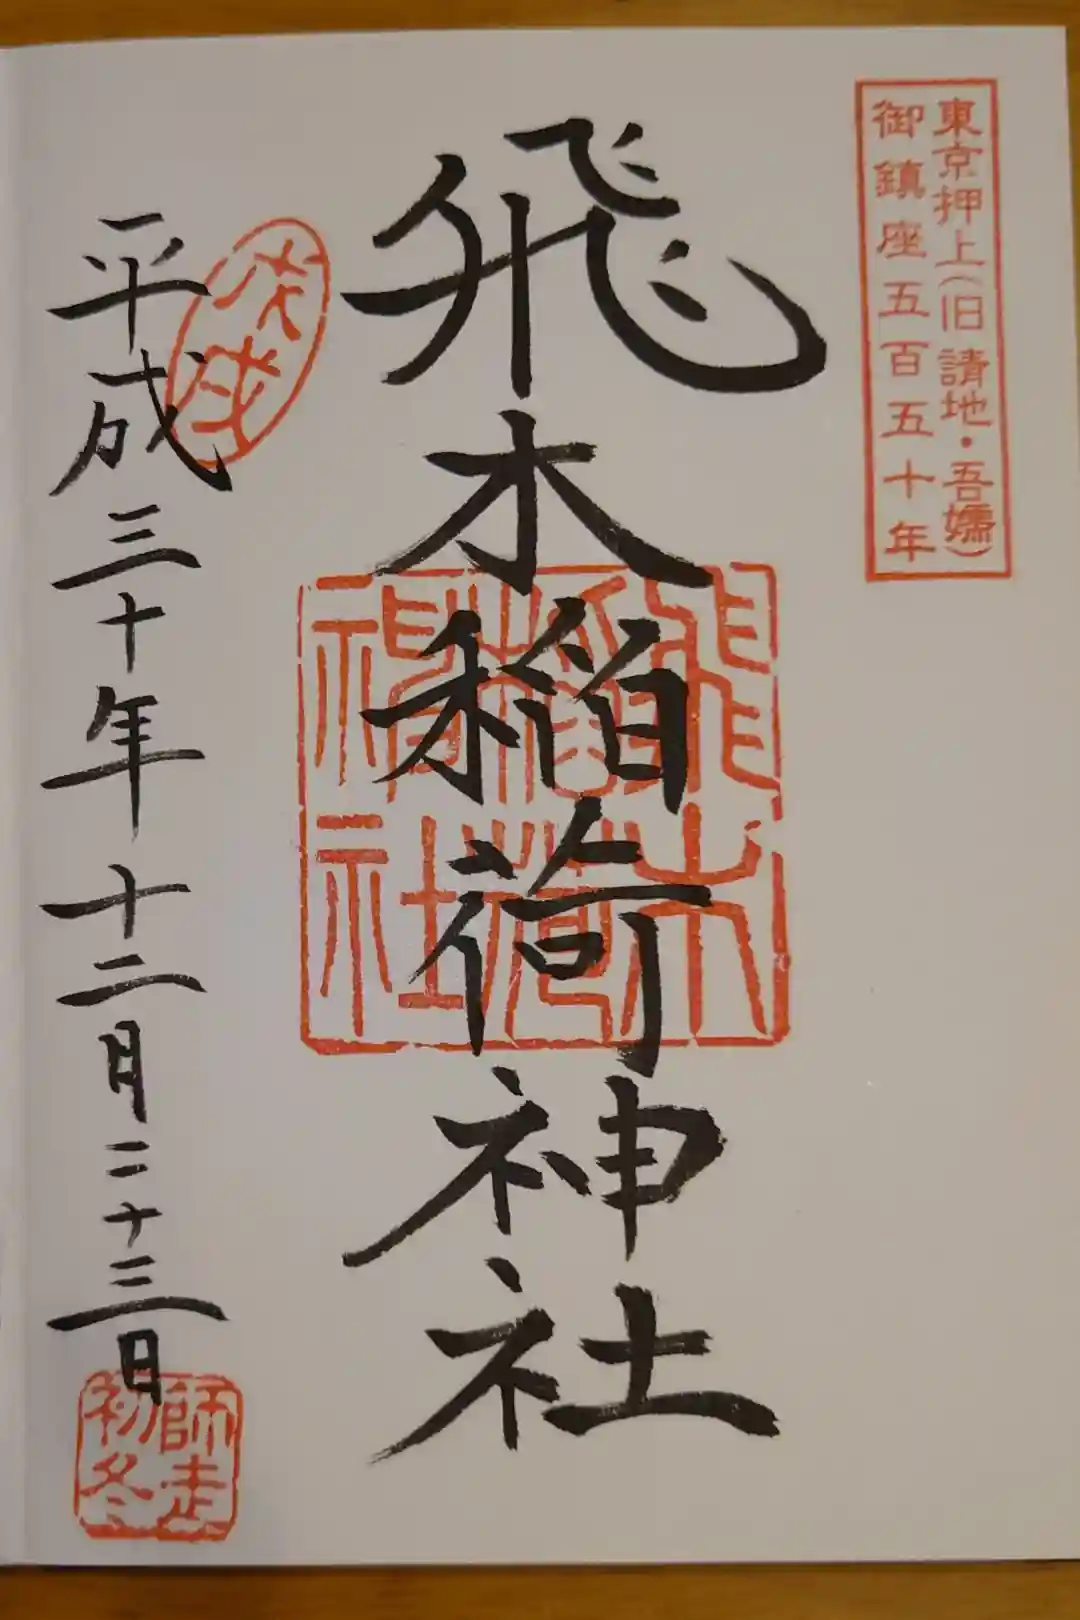 東京押上(旧請地・吾嬬)
御鎮座五百五十年
飛木稲荷神社
飛木
稲荷
神社
平成三十年十二月二十三日
戊戌
師走
初冬